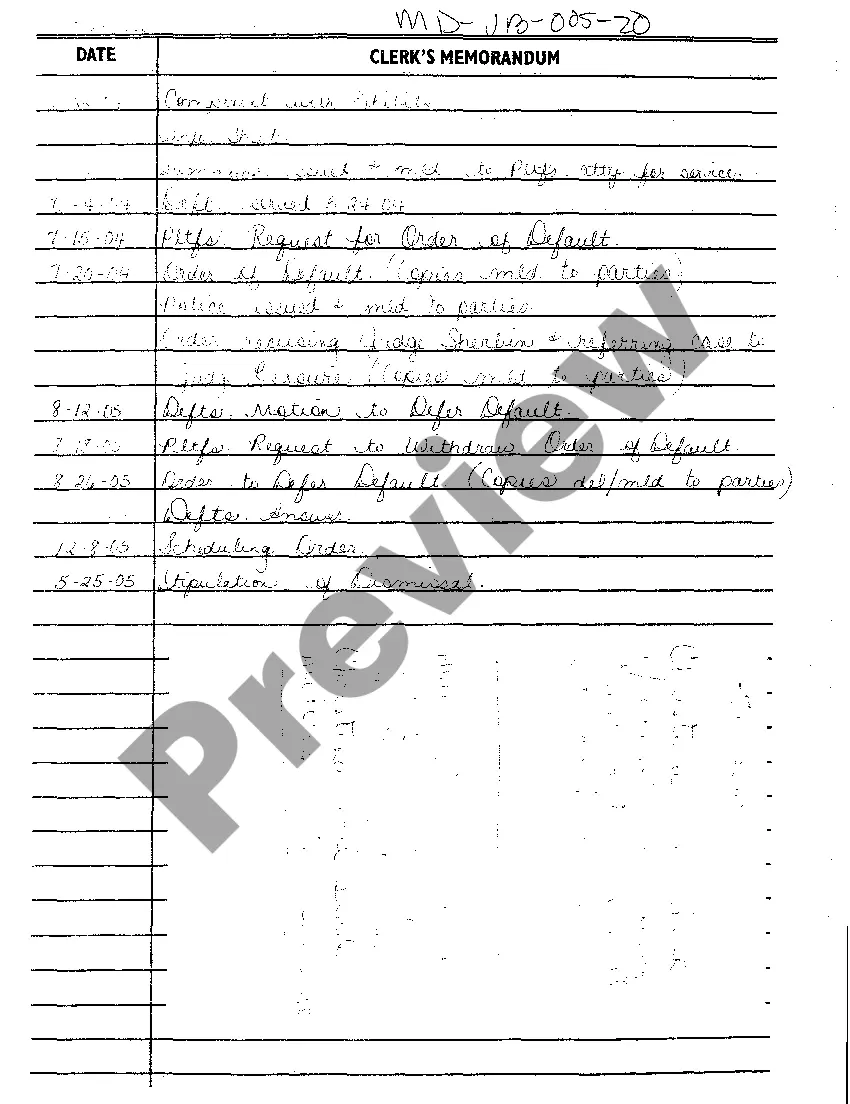 MD-JB-005-20
DATE CLERK'S MEMORANDUM
Complaint with
Info Sheet
issued & mld to Pltfs. Atty for service.
Deft. served 6 24 04
7-15-04 Pltfs. Request for Order of Default.
7-20-04 Order of Default. (Copies mld to parties)
Notice issued & mld to parties
Order recusing Judge & referring case to
Judge (Copies mld to parties)
8-12-05 Defts. Motion to Defer Default.
Pltfs. Request to Withdraw Order of Default.
8-26-05 Order to Defer Default. (Copies del/mld to parties)
Defts. Answer.
12-8-05 Scheduling Order.
5-25-05 Stipulation of Dismissal.
Preview